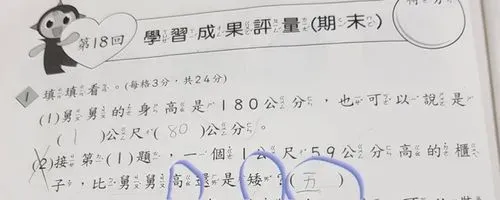 第18回
學習成果評量(期末)
1 填填看。(每格3分,共24分)
(1)舅舅的身高是180公分,也可以說是
( 1 )公尺( 80 )公分。
(2)接第(1)題,一個1公尺59公分高的櫃
子,比舅舅高還是矮?( 五 )